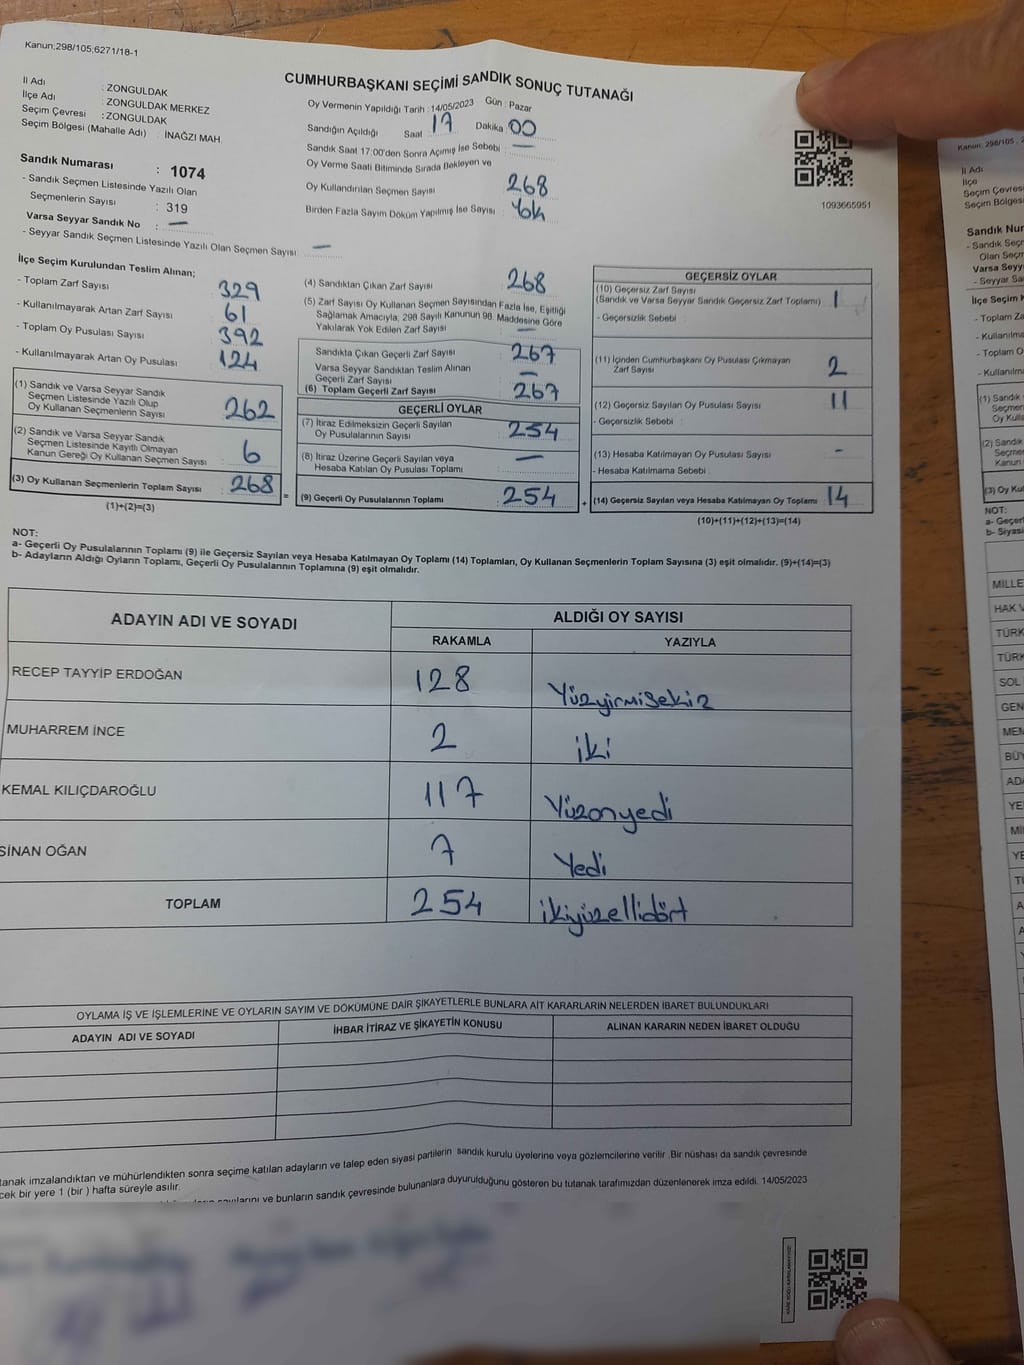 Kanun:298/105,6271/18-1
CUMHURBAŞKANI SEÇİMİ SANDIK SONUÇ TUTANAĞI
İl Adı : ZONGULDAK
İlçe Adı : ZONGULDAK MERKEZ
Seçim Çevresi : ZONGULDAK
Seçim Bölgesi (Mahalle Adı) : İNAĞZI MAH
Sandık Numarası : 1074
- Sandık Seçmen Listesinde Yazılı Olan
Seçmenlerin Sayısı : 319
Varsa Seyyar Sandık No : —
- Seyyar Sandık Seçmen Listesinde Yazılı Olan Seçmen Sayısı: —
Oy Vermenin Yapıldığı Tarih : 14/05/2023 Gün : Pazar
Sandığın Açıldığı Saat 17 Dakika 00
Sandık Saat 17:00'den Sonra Açımış İse Sebebi : —
Oy Verme Saati Bitiminde Sırada Bekleyen ve
Oy Kullandırılan Seçmen Sayısı 268
Birden Fazla Sayım Döküm Yapılmış İse Sayısı : Yok
1093665951
İlçe Seçim Kurulundan Teslim Alınan;
- Toplam Zarf Sayısı : 329
- Kullanılmayarak Artan Zarf Sayısı : 61
- Toplam Oy Pusulası Sayısı : 392
- Kullanılmayarak Artan Oy Pusulası : 124
(1) Sandık ve Varsa Seyyar Sandık
Seçmen Listesinde Yazılı Olup
Oy Kullanan Seçmenlerin Sayısı : 262
(2) Sandık ve Varsa Seyyar Sandık
Seçmen Listesinde Kayıtlı Olmayan
Kanun Gereği Oy Kullanan Seçmen Sayısı : 6
(3) Oy Kullanan Seçmenlerin Toplam Sayısı : 268
(1)+(2)=(3)
(4) Sandıktan Çıkan Zarf Sayısı : 268
(5) Zarf Sayısı Oy Kullanan Seçmen Sayısından Fazla İse, Eşitliği
Sağlamak Amacıyla, 298 Sayılı Kanunun 98. Maddesine Göre
Yakılarak Yok Edilen Zarf Sayısı : —
Sandıkta Çıkan Geçerli Zarf Sayısı : 267
Varsa Seyyar Sandıktan Teslim Alınan
Geçerli Zarf Sayısı : —
(6) Toplam Geçerli Zarf Sayısı : 267
GEÇERLİ OYLAR
(7) İtiraz Edilmeksizin Geçerli Sayılan
Oy Pusulalarının Sayısı : 254
(8) İtiraz Üzerine Geçerli Sayılan veya
Hesaba Katılan Oy Pusulası Toplamı : —
= (9) Geçerli Oy Pusulalarının Toplamı : 254
GEÇERSİZ OYLAR
(10) Geçersiz Zarf Sayısı
(Sandık ve Varsa Seyyar Sandık Geçersiz Zarf Toplamı) : 1
- Geçersizlik Sebebi :
(11) İçinden Cumhurbaşkanı Oy Pusulası Çıkmayan
Zarf Sayısı : 2
(12) Geçersiz Sayılan Oy Pusulası Sayısı : 11
- Geçersizlik Sebebi :
(13) Hesaba Katılmayan Oy Pusulası Sayısı : -
- Hesaba Katılmama Sebebi :
+ (14) Geçersiz Sayılan veya Hesaba Katılmayan Oy Toplamı : 14
(10)+(11)+(12)+(13)=(14)
NOT:
a- Geçerli Oy Pusulalarının Toplamı (9) ile Geçersiz Sayılan veya Hesaba Katılmayan Oy Toplamı (14) Toplamları, Oy Kullanan Seçmenlerin Toplam Sayısına (3) eşit olmalıdır. (9)+(14)=(3)
b- Adayların Aldığı Oyların Toplamı, Geçerli Oy Pusulalarının Toplamına (9) eşit olmalıdır.
ADAYIN ADI VE SOYADI ALDIĞI OY SAYISI
RAKAMLA YAZIYLA
RECEP TAYYİP ERDOĞAN 128 Yüzyirmisekiz
MUHARREM İNCE 2 iki
KEMAL KILIÇDAROĞLU 117 Yüzonyedi
SİNAN OĞAN 7 Yedi
TOPLAM 254 ikiyüzellidört
OYLAMA İŞ VE İŞLEMLERİNE VE OYLARIN SAYIM VE DÖKÜMÜNE DAİR ŞİKAYETLERLE BUNLARA AİT KARARLARIN NELERDEN İBARET BULUNDUKLARI
ADAYIN ADI VE SOYADI İHBAR İTİRAZ VE ŞİKAYETİN KONUSU ALINAN KARARIN NEDEN İBARET OLDUĞU
tanak imzalandıktan ve mühürlendikten sonra seçime katılan adayların ve talep eden siyasi partilerin sandık kurulu üyelerine veya gözlemcilerine verilir .Bir nüshası da sandık çevresinde
cek bir yere 1 (bir ) hafta süreyle asılır.
ve bunların sandık çevresinde bulunanlara duyurulduğunu gösteren bu tutanak tarafımızdan düzenlenerek imza edildi. 14/05/2023
Kanun: 298/105
İl Adı
İlçe
Seçim Çevresi
Seçim Bölgesi
Sandık Nur
- Sandık Seç
Olan Seçm
Varsa Seyya
- Seyyar Sa
İlçe Seçim K
- Toplam Za
- Kullanılma
- Toplam O
- Kullanılma
(1) Sandık
Seçmen
Oy Kulla
(2) Sandık
Seçmen
Kanun
(3) Oy Kul
NOT:
a- Geçerl
b- Siyas
MİLLE
HAK V
TÜRK
TÜRK
SOL
GEN
MEM
BÜY
ADA
YE
Mİ
YE